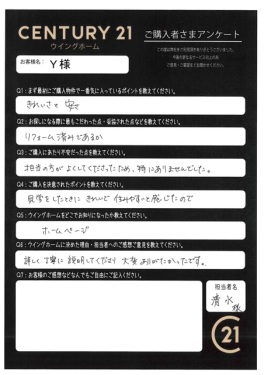 CENTURY 21
ウイングホーム
ご購入者さまアンケート
お客様名： Y様
Q1：まず最初にご購入物件で一番気に入っているポイントを教えてください。
きれいさと
Q2：お探しになる際に最もこだわった点・妥協された点などを教えてください。
リフォーム済みであるか
Q3：ご購入にあたり不安だった点を教えてください。
担当の方がよくしてくださったため、特にありませんでした。
Q4：ご購入を決意されたポイントを教えてください。
見学をしたときにきれいで住みやすいと感じたので
Q5：ウイングホームをどこでお知りになったか教えてください。
ホームページ
Q6：ウイングホームに決めた理由・担当者へのご感想ご意見を教えてください。
詳しく丁寧に説明してくださり大変ありがたかったです。
Q7：お客様のご感想などなんでもご自由にご記入ください。
担当者名
清水
様
C21